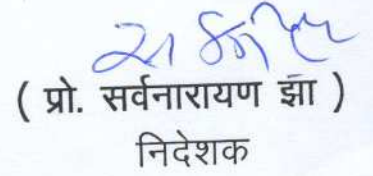 ( प्रो. सर्वनारायण झा )
निदेशक